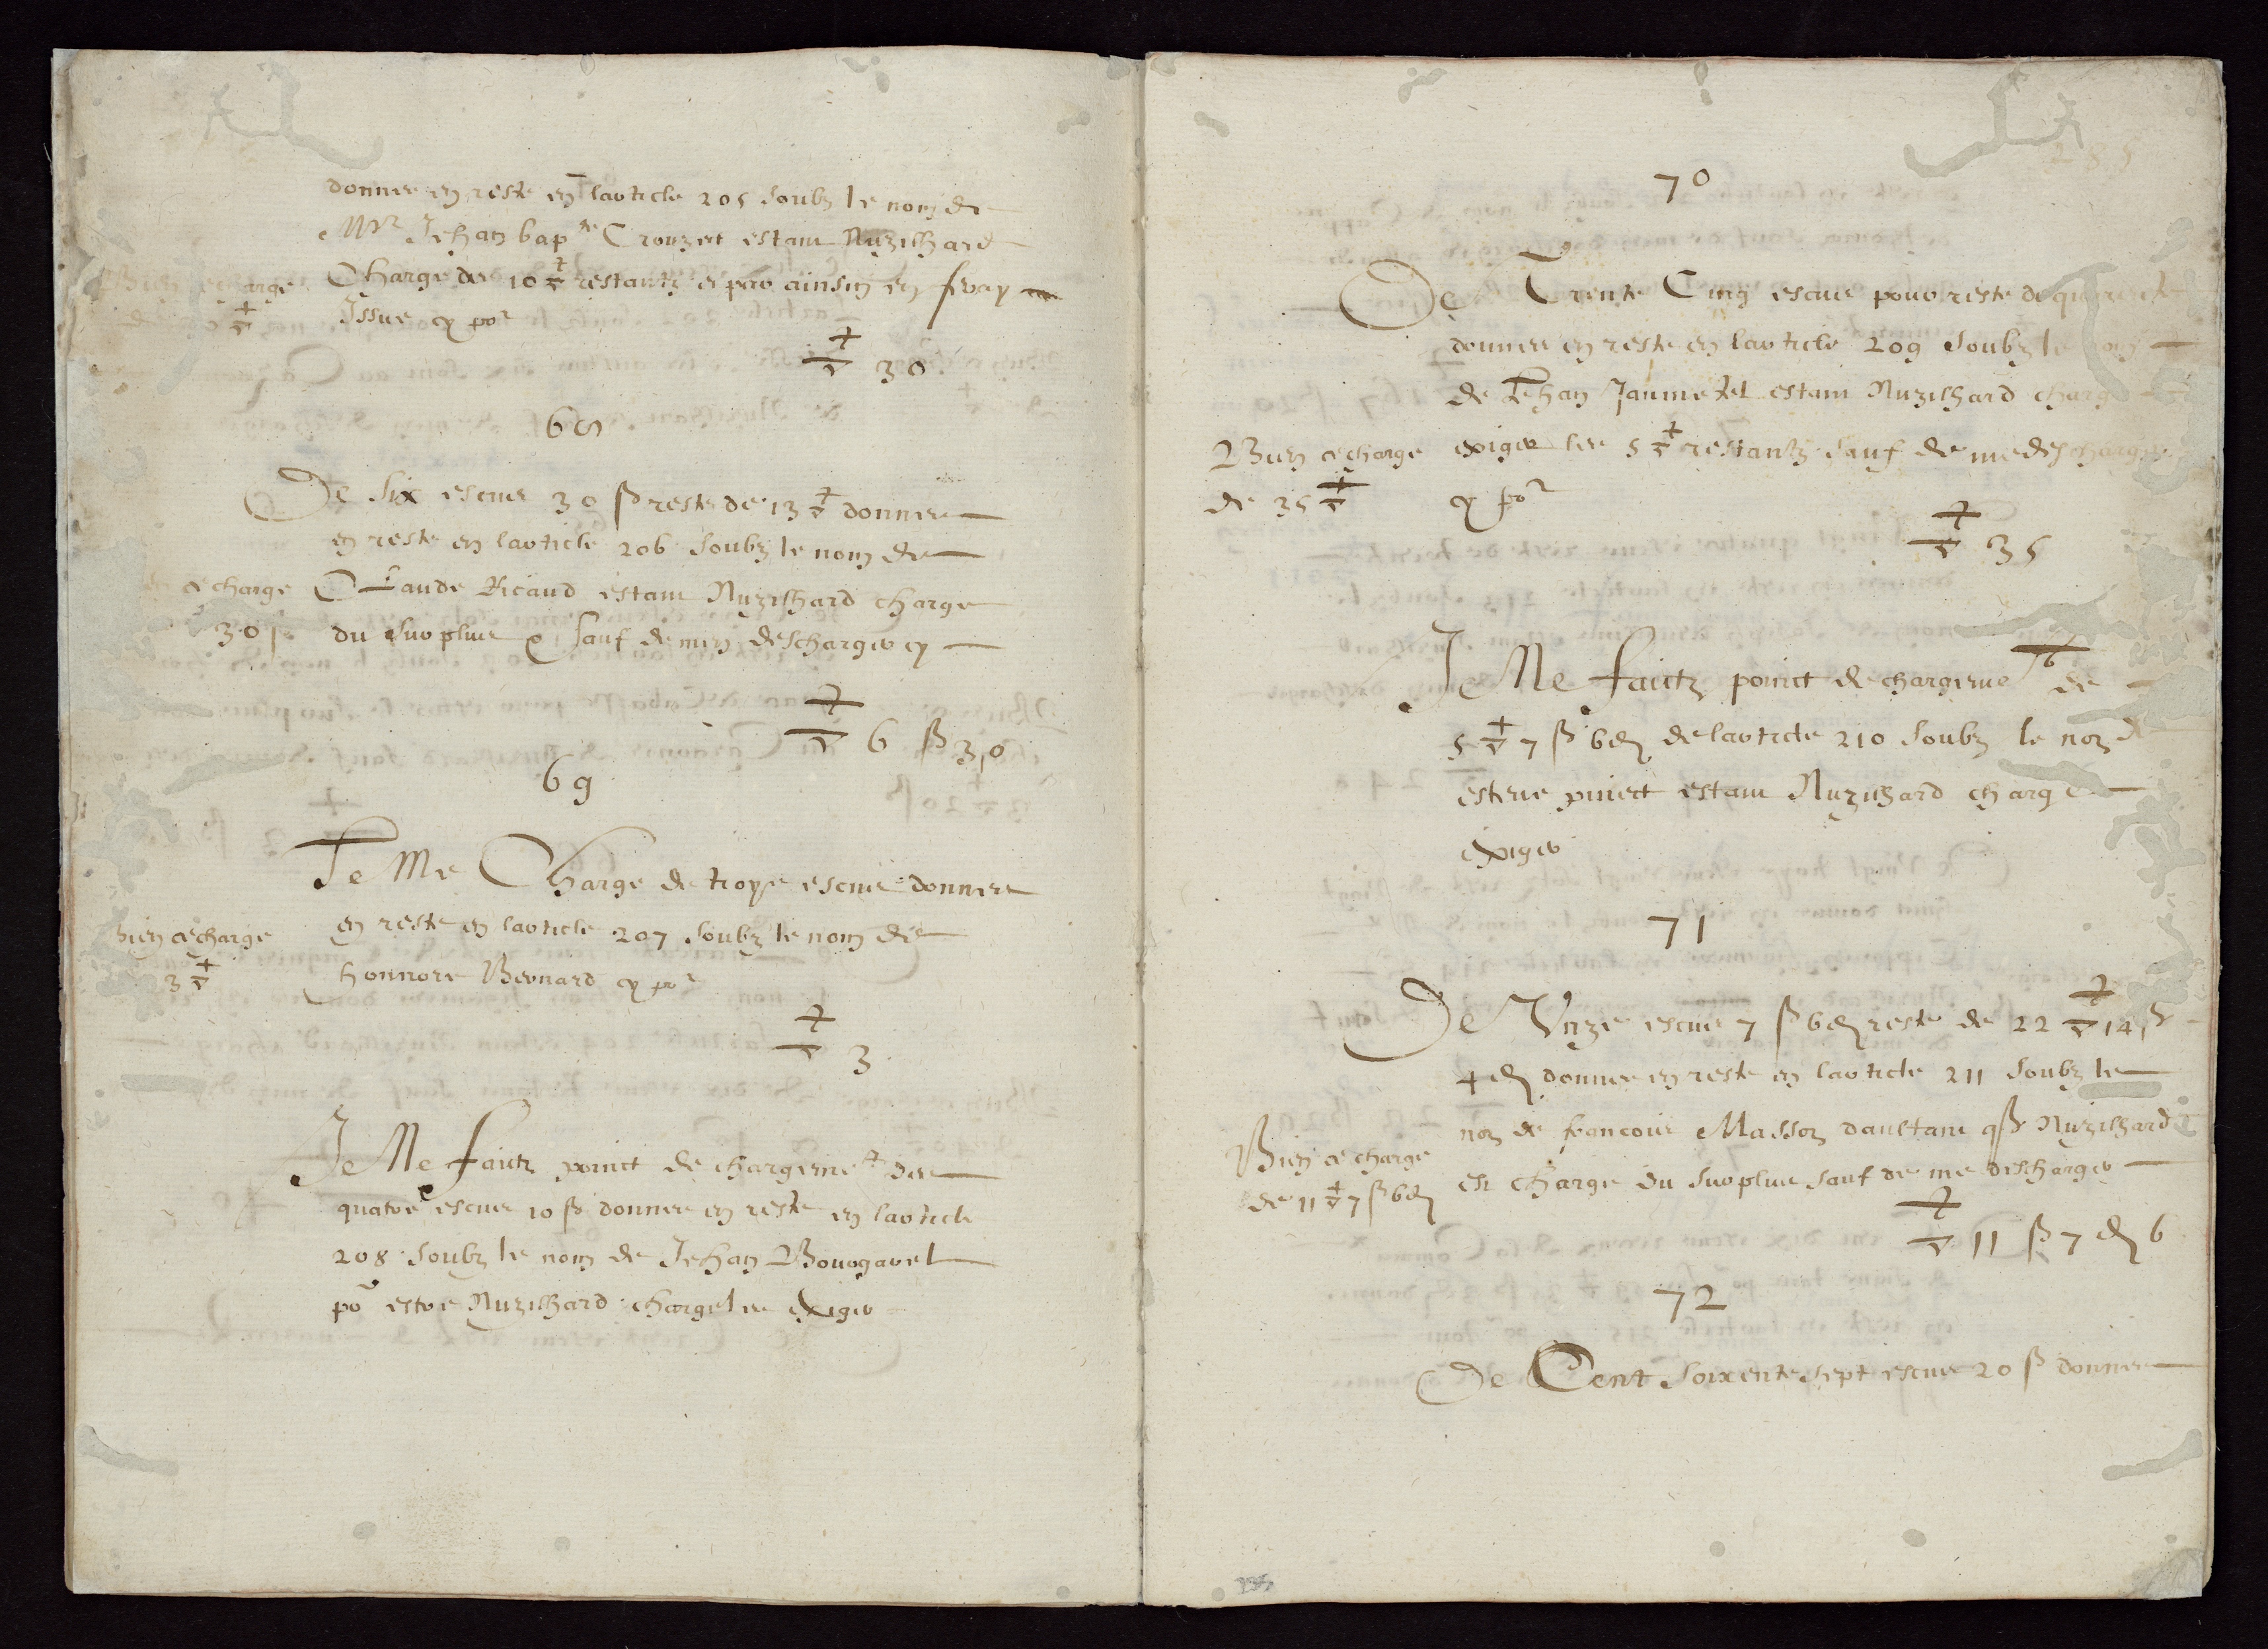 donnes en reste en larticle 205 soubz le nom de
Mr Jehan bapte Crouzet estant Nuzilhard
Charge des 10 restantz & par ainsin en feray
Issue cy por
charge
30
68
De six escus 30 ß reste de 13 donnes
en reste en larticle 206 soubz le nom de
Claude Ricaud estant Nuzilhard charge
du surplus & sauf de men descharger cy
charge
30 ß
6 ß 30
69
Je Me Charge de troys escus donnes
en reste en larticle 207 soubz le nom de
honnore Bernard cy por
bien & charge
3
3
Je Ne faictz poinct de chargemet des
quatre escus 10 ß donnes en reste en larticle
208 soubz le nom de Jehan Bourgarel
por estre Nuzilhard charge les exiger
285
70
De Trente Cinq escus pour reste de quarente
donnes en reste en larticle 209 soubz le nom
de Jehan Jaumetel estant Nuzilhard charge
exiger les 5 restantz sauf de me descharger
cy por
Bien & charge
de 35
35
Je Ne faictz poinct de chargemet de
5 7 ß 6 d de larticle 210 soubz le nom de
esteve poinct estant Nuzilhard charge
exiger
71
De Unze escus 7 ß 6 d reste de 22 14 ß
4 d donnes en reste en larticle 211 soubz le
nom de francois Masson daultant que Nuzilhard
est charge du surplus sauf de me descharger
Bien & charge
de 11 7 ß 6 d
11 ß 7 d 6
72
De Cent soixente sept escus 20 ß donnes